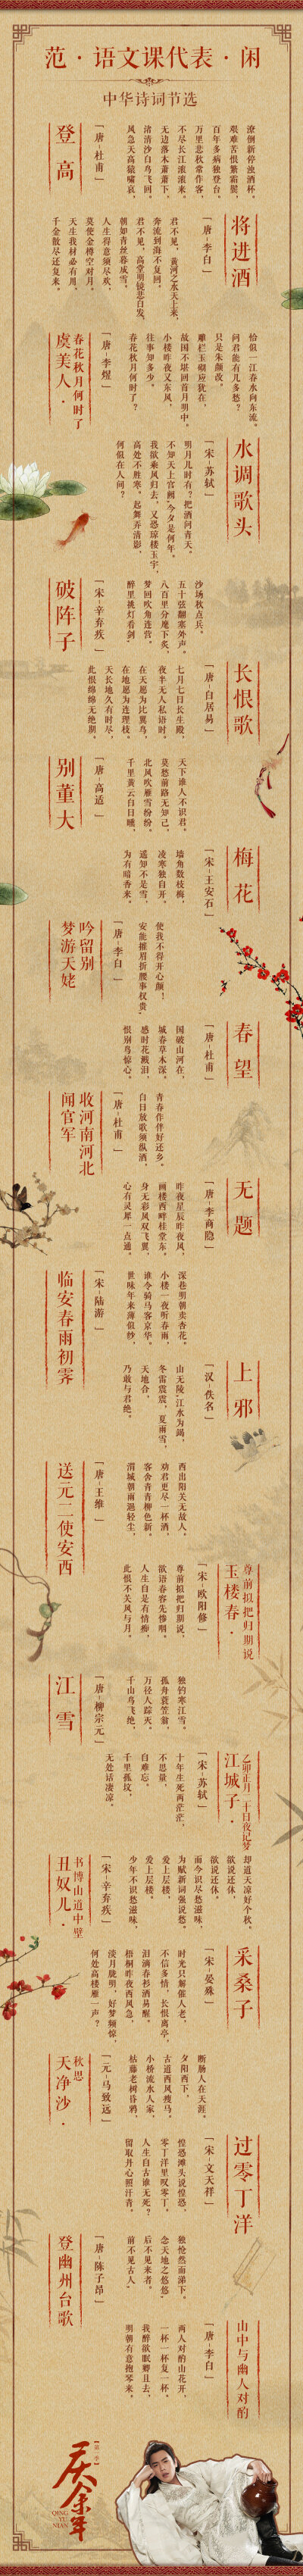 范·语文课代表·闲
中华诗词节选
登高
「唐-杜甫」
风急天高猿啸哀，
渚清沙白鸟飞回。
无边落木萧萧下，
不尽长江滚滚来。
万里悲秋常作客，
百年多病独登台。
艰难苦恨繁霜鬓，
潦倒新停浊酒杯。
将进酒
「唐-李白」
君不见，黄河之水天上来，
奔流到海不复回。
君不见，高堂明镜悲白发，
朝如青丝暮成雪。
人生得意须尽欢，
莫使金樽空对月。
天生我材必有用，
千金散尽还复来。
虞美人·
春花秋月何时了
「唐-李煜」
春花秋月何时了？
往事知多少。
小楼昨夜又东风，
故国不堪回首月明中。
雕栏玉砌应犹在，
只是朱颜改。
问君能有几多愁？
恰似一江春水向东流。
水调歌头
「宋-苏轼」
明月几时有？把酒问青天。
不知天上宫阙，今夕是何年。
我欲乘风归去，又恐琼楼玉宇，
高处不胜寒。起舞弄清影，
何似在人间？
破阵子
「宋-辛弃疾」
醉里挑灯看剑，
梦回吹角连营。
八百里分麾下炙，
五十弦翻塞外声。
沙场秋点兵。
长恨歌
「唐-白居易」
七月七日长生殿，
夜半无人私语时。
在天愿为比翼鸟，
在地愿为连理枝。
天长地久有时尽，
此恨绵绵无绝期。
别董大
「唐-高适」
千里黄云白日曛，
北风吹雁雪纷纷。
莫愁前路无知己，
天下谁人不识君。
梅花
「宋-王安石」
墙角数枝梅，
凌寒独自开。
遥知不是雪，
为有暗香来。
梦游天姥
吟留别
「唐-李白」
安能摧眉折腰事权贵，
使我不得开心颜！
春望
「唐-杜甫」
国破山河在，
城春草木深。
感时花溅泪，
恨别鸟惊心。
闻官军
收河南河北
「唐-杜甫」
白日放歌须纵酒，
青春作伴好还乡。
无题
「唐-李商隐」
昨夜星辰昨夜风，
画楼西畔桂堂东。
身无彩凤双飞翼，
心有灵犀一点通。
临安春雨初霁
「宋-陆游」
世味年来薄似纱，
谁令骑马客京华。
小楼一夜听春雨，
深巷明朝卖杏花。
上邪
「汉-佚名」
山无陵，江水为竭，
冬雷震震，夏雨雪，
天地合，
乃敢与君绝。
送元二使安西
「唐-王维」
渭城朝雨浥轻尘，
客舍青青柳色新。
劝君更尽一杯酒，
西出阳关无故人。
玉楼春·
尊前拟把归期说
「宋-欧阳修」
尊前拟把归期说，
欲语春容先惨咽。
人生自是有情痴，
此恨不关风与月。
江雪
「唐-柳宗元」
千山鸟飞绝，
万径人踪灭。
孤舟蓑笠翁，
独钓寒江雪。
江城子·
乙卯正月二十日夜记梦
「宋-苏轼」
十年生死两茫茫，
不思量，
自难忘。
千里孤坟，
无处话凄凉。
丑奴儿·
书博山道中壁
「宋-辛弃疾」
少年不识愁滋味，
爱上层楼。
爱上层楼，
为赋新词强说愁。
而今识尽愁滋味，
欲说还休。
欲说还休，
却道天凉好个秋。
采桑子
「宋-晏殊」
时光只解催人老，
不信多情，长恨离亭，
泪滴春衫酒易醒。
梧桐昨夜西风急，
淡月胧明，好梦频惊，
何处高楼雁一声？
天净沙·
秋思
「元-马致远」
枯藤老树昏鸦，
小桥流水人家，
古道西风瘦马。
夕阳西下，
断肠人在天涯。
过零丁洋
「宋-文天祥」
惶恐滩头说惶恐，
零丁洋里叹零丁。
人生自古谁无死？
留取丹心照汗青。
登幽州台歌
「唐-陈子昂」
前不见古人，
后不见来者。
念天地之悠悠，
独怆然而涕下。
山中与幽人对酌
「唐-李白」
两人对酌山花开，
一杯一杯复一杯。
我醉欲眠卿且去，
明朝有意抱琴来。
庆余年
QING
YU
NIAN